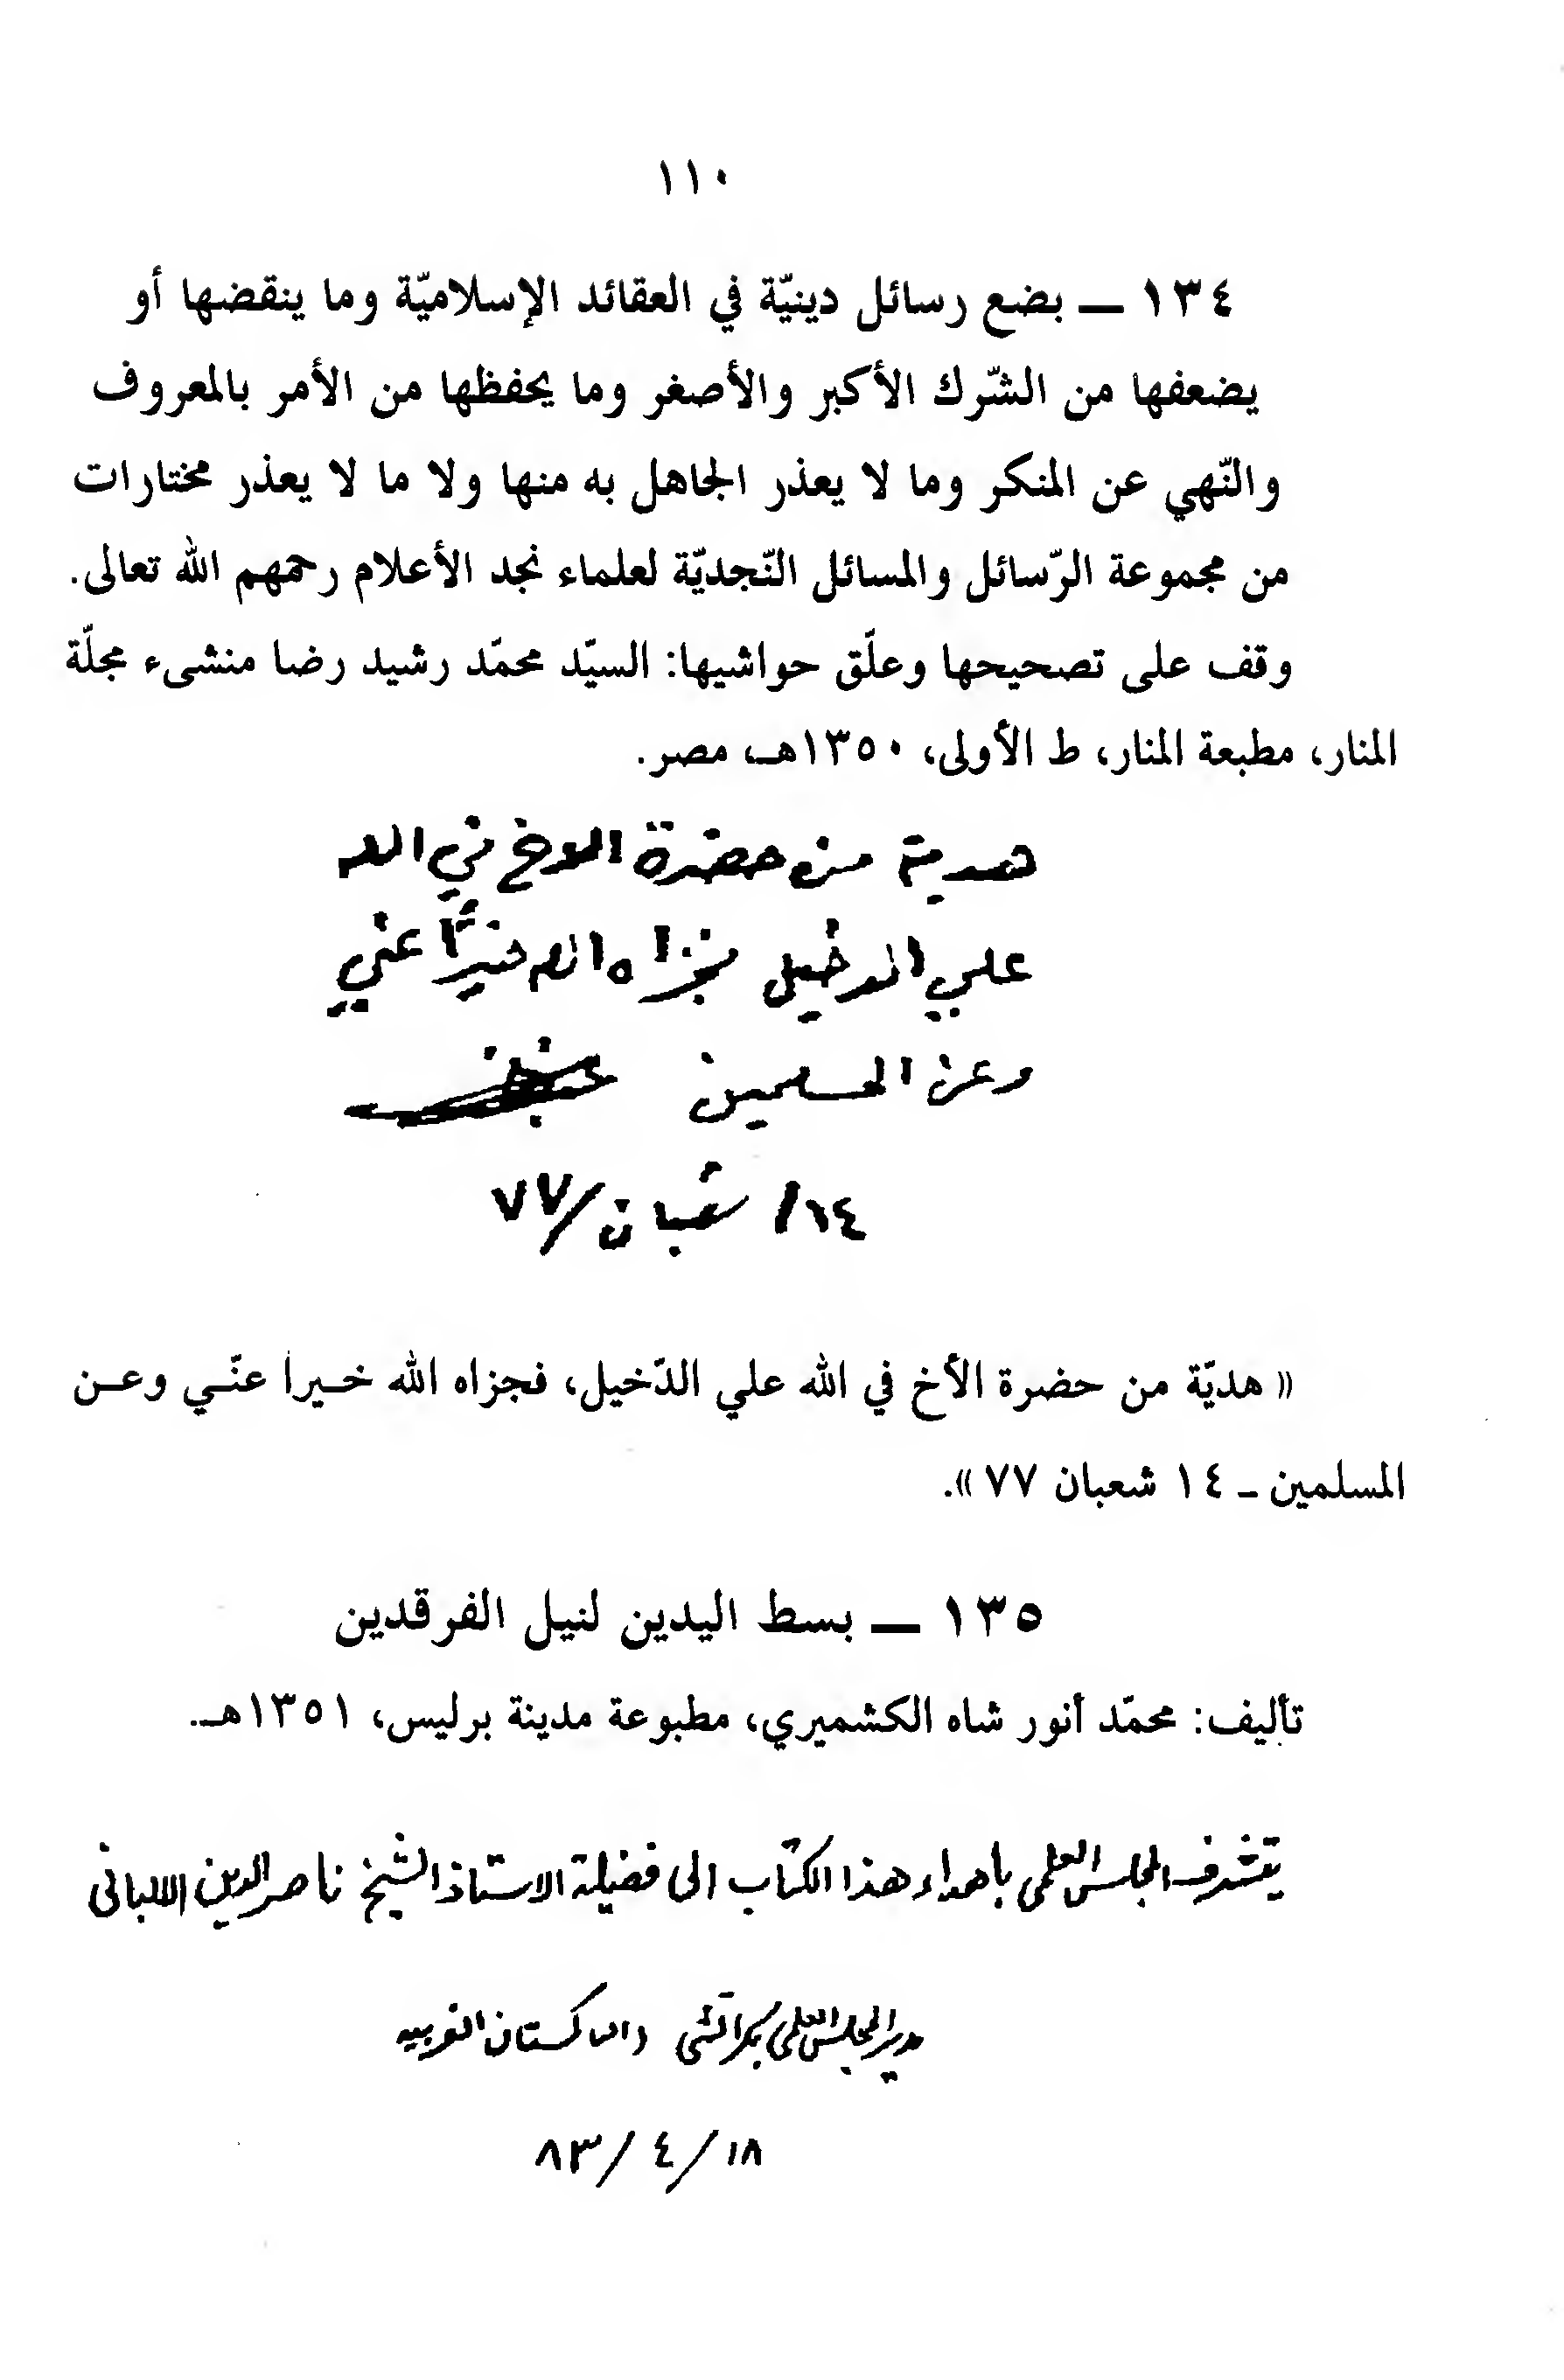 ١١٠
١٣٤ ــ بضع رسائل دينيّة في العقائد الإسلاميّة وما ينقضها أو
يضعفها من الشّرك الأكبر والأصغر وما يحفظها من الأمر بالمعروف
والنّهي عن المنكر وما لا يعذر الجاهل به منها ولا ما لا يعذر مختارات
من مجموعة الرّسائل والمسائل النّجديّة لعلماء نجد الأعلام رحمهم الله تعالى.
وقف على تصحيحها وعلّق حواشيها: السيّد محمّد رشيد رضا منشىء مجلّة
المنار، مطبعة المنار، ط الأولى، ١٣٥٠هـ، مصر.
هدية من حضرة الأخ في الله
علي الدخيل فجزاه الله خيرًا عني
وعن المسلمين
١٤/ شعبان/٧٧
« هديّة من حضرة الأخ في الله علي الدّخيل، فجزاه الله خـيراً عنّـي وعـن
المسلمين ـ ١٤ شعبان ٧٧ ».
١٣٥ ــ بسط اليدين لنيل الفرقدين
تأليف: محمّد أنور شاه الكشميري، مطبوعة مدينة برليس، ١٣٥١هـ.
يتشرف المجلس العلمي بأهداء هذا الكتاب الى فضيلة الاستاذ الشيخ ناصر الدين الالباني
مدير المجلس العلمي بكراتشي الباكستان الغربيه
١٨/ ٤ /٨٣